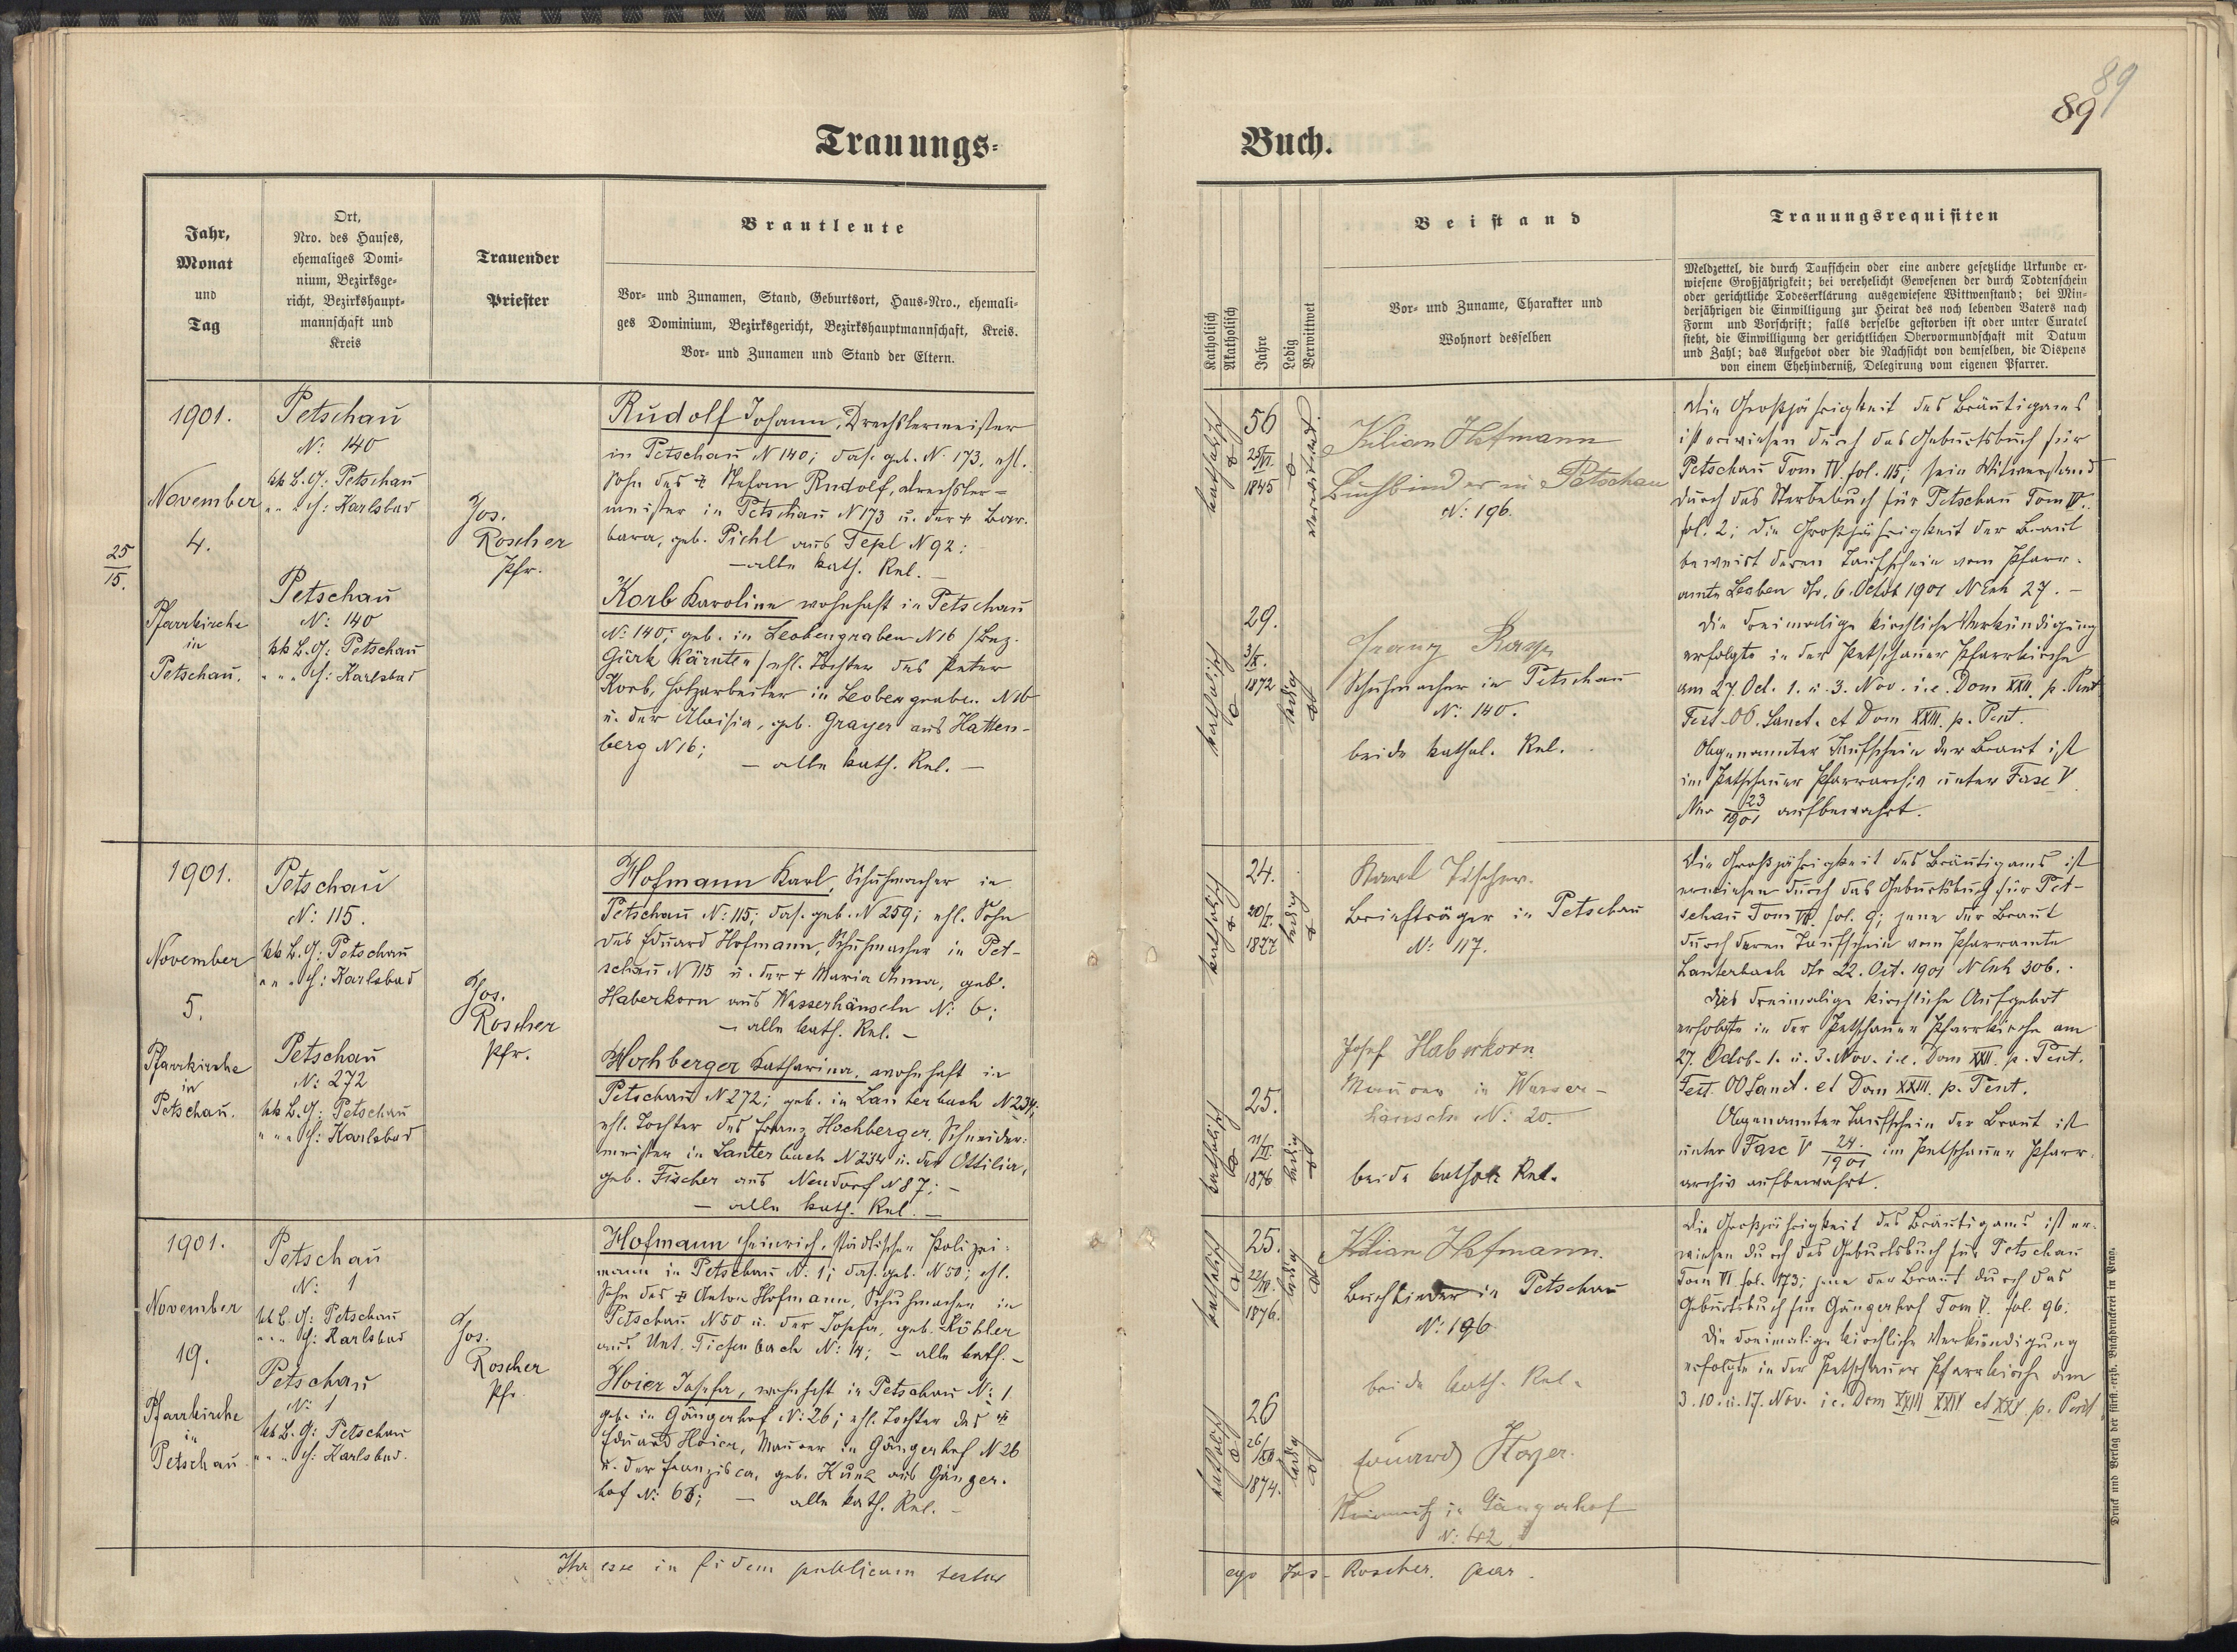 89
89
Trauungs-
Jahr,
Monat
und
Tag
Ort,
Nro. des Hauses,
ehemaliges Domi-
nium, Bezirksge-
richt, Bezirkshaupt-
mannschaft und
Kreis
Trauender
Priester
Brautleute
Vor- und Zunamen, Stand, Geburtsort, Haus-Nro., ehemali-
ges Dominium, Bezirksgericht, Bezirkshauptmannschaft, Kreis.
Vor- und Zunamen und Stand der Eltern.
1901.
November
4.
25
15.
Pfarrkirche
in
Petschau.
Petschau
N: 140
kk B. G: Petschau
" " " H: Karlsbad
Petschau
N: 140
kk B. G: Petschau
" " " H: Karlsbad
Jos.
Roscher
Pfr.
Rudolf Johann, Drechslermeister
in Petschau N 140; das. geb. N. 173, ehl.
Sohn des + Stefan Rudolf, Drechsler-
meister in Petschau N 173 u. der + Bar-
bara, geb. Pichl aus Tepl N 92;
– alle kath. Rel. –
Korb Karoline wohnhaft in Petschau
N: 140; geb. in Leobengraben N 16 /Bez.
Gurk Kärnten/ ehl. Tochter des Peter
Korb, Holzarbeiter in Leobengraben N 16
u. der Aloisia, geb. Grayer aus Hatten-
berg N 16;
– alle kath. Rel. –
1901.
November
5.
Pfarrkirche
in
Petschau.
Petschau
N: 115.
kk B. G: Petschau
" " " H: Karlsbad
Petschau
N: 272
kk B. G: Petschau
" " " H: Karlsbad
Jos.
Roscher
Pfr.
Hofmann Karl, Schuhmacher in
Petschau N: 115; das. geb. N 259; ehl. Sohn
des Eduard Hofmann, Schuhmacher in Pet-
schau N 115 u. der + Maria Anna, geb.
Haberkorn aus Wasserhäuseln N: 6;
– alle kath. Rel. –
Hochberger Katharina, wohnhaft in
Petschau N 272; geb. in Lauterbach N 234;
ehl. Tochter des Franz Hochberger, Schneider-
meister in Lauterbach N 234 u. der Ottilia,
geb. Fischer aus Neudorf N 87; –
– alle kath. Rel. –
1901.
November
19.
Pfarrkirche
in
Petschau
Petschau
N: 1
kk B. G: Petschau
" " " H: Karlsbad
Petschau
N: 1
kk B. G: Petschau
" " " H: Karlsbad.
Jos.
Roscher
Pfr.
Hofmann Heinrich, städtischer Polizei-
mann in Petschau N: 1; das. geb. N 50; ehl.
Sohn des + Anton Hofmann, Schuhmacher in
Petschau N 50 u. der Josefa, geb. Köhler
aus Unt. Tiefenbach N: 14; – alle kath. –
Hoier Josefa, wohnhaft in Petschau N: 1
geb. in Gängerhof N: 26; ehl. Tochter des +
Eduard Hoier, Maurer in Gängerhof N 26
u. der Franzisca, geb. Kunz aus Gänger-
hof N: 63; – alle kath. Rel. –
Ita esse in fidem publicam testor
Buch.
Katholisch
Akatholisch
Jahre
Ledig
Verwittwet
Beistand
Vor- und Zuname, Charakter und
Wohnort desselben
Trauungsrequisiten
Meldzettel, die durch Taufschein oder eine andere gesetzliche Urkunde er-
wiesene Großjährigkeit; bei verehelicht Gewesenen der durch Todtenschein
oder gerichtliche Todeserklärung ausgewiesene Wittwenstand; bei Min-
derjährigen die Einwilligung zur Heirat des noch lebenden Vaters nach
Form und Vorschrift; falls derselbe gestorben ist oder unter Curatel
steht, die Einwilligung der gerichtlichen Obervormundschaft mit Datum
und Zahl; das Aufgebot oder die Nachsicht von demselben, die Dispens
von einem Ehehinderniß, Delegirung vom eigenen Pfarrer.
katholisch
56
25/VI.
1845
verwitwet
Kilian Hofmann
Buchbinder in Petschau
N: 196.
katholisch
29.
3/X.
1872
ledig
Franz
Schuhmacher in Petschau
N: 140.
beide kathol. Rel.
Die Großjährigkeit des Bräutigams
ist erwiesen durch das Geburtsbuch für
Petschau Tom IV. fol. 115; sein Witwerstand
durch das Sterbebuch für Petschau Tom IV.
fol. 2; die Großjährigkeit der Braut
beweist deren Taufschein vom Pfarr-
amte Leoben dto. 6. Octob 1901 N Exh 27. –
Die dreimalige kirchliche Verkündigung
erfolgte in der Petschauer Pfarrkirche
am 27. Oct. 1. u. 3. Nov. i. e. Dom XXII. p. Pent
Fest. OO. Sanct. et Dom XXIII. p. Pent.
Obgenannter Taufschein der Braut ist
im Petschauer Pfarrarchiv unter Fasc V
Nro 23/1901 aufbewahrt.
katholisch
24.
20/
1877
ledig
Karl Tischer.
Briefträger in Petschau
N: 117.
katholisch
25.
11/
1876
ledig
Josef Haberkorn
Maurer in Wasser-
häuseln N: 20.
beide kathol. Rel.
Die Großjährigkeit des Bräutigams ist
erwiesen durch das Geburtsbuch für Pet-
schau Tom VI. fol. 9; jene der Braut
durch deren Taufschein vom Pfarramte
Lauterbach dto 22. Oct. 1901 N Exh 306. –
Das dreimalige kirchliche Aufgebot
erfolgte in der Petschauer Pfarrkirche am
27. Octob. 1. u. 3. Nov. i. e. Dom XXII. p. Pent.
Fest. OO Sanct. et Dom XXIII. p. Pent.
Obgenannter Taufschein der Braut ist
unter Fasc V 24./1901 im Petschauer Pfarr-
archiv aufbewahrt.
katholisch
25.
22/
1876.
ledig
Kilian Hofmann.
Buchbinder in Petschau
N: 196
beide kath. Rel.
katholisch
26
26/XII.
1874.
ledig
Eduard Hoyer.
in Gängerhof
N: 42
Die Großjährigkeit des Bräutigams ist er-
wiesen durch das Geburtsbuch für Petschau
Tom VI fol. 173; jene der Braut durch das
Geburtsbuch für Gängerhof Tom V. fol. 96.
Die dreimalige kirchliche Verkündigung
erfolgte in der Petschauer Pfarrkirche am
3. 10. u. 17. Nov. i e. Dom XXIII XXIV et XXV p. Pent.
ego Jos. Roscher. par.
Druck und Verlag der fürst. erzb. Buchdruckerei in Prag.